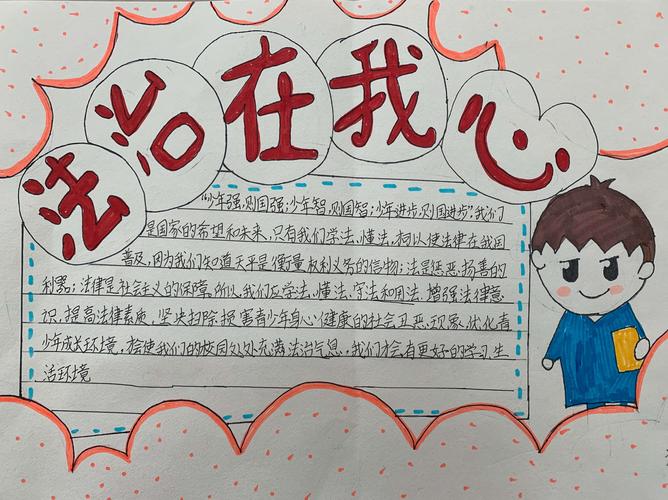 法治在我心
“少年强,则国强;少年智,则国智;少年进步,则国进步”,我们
是国家的希望和未来,只有我们学法、懂法,相以使法律在我国
普及,因为我们知道天平是衡量权利义务的信物;法是惩恶扬善的
利器;法律是社会主义的保障,所以我们应学法、懂法、守法和用法,增强法律意
识,提高法律素质,坚决扫除损害青少年身心健康的社会丑恶现象,优化青
少年成长环境,才会使我们的校园处处充满法治气息,我们才会有更好的学习生
活环境